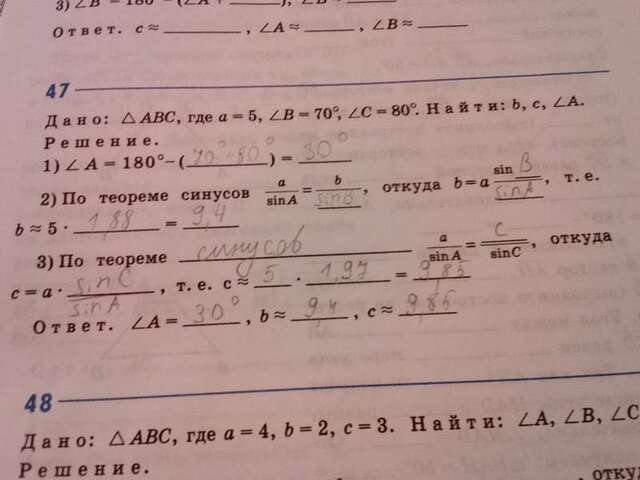 3) ∠B = 180°−(∠A + ________), ∠B ≈ ________
Ответ. c ≈ ________, ∠A ≈ ________, ∠B ≈ ________
47
Дано: △ABC, где a = 5, ∠B = 70°, ∠C = 80°. Найти: b, c, ∠A.
Решение.
1) ∠A = 180°−(70°+80°) = 30°
2) По теореме синусов a/sinA = b/sinB, откуда b = a sinB/sinA, т. е.
b ≈ 5 · 1,88 = 9,4
3) По теореме синусов a/sinA = c/sinC, откуда
c = a · sinC/sinA, т. е. c ≈ 5 · 1,97 = 9,85
Ответ. ∠A = 30°, b ≈ 9,4, c ≈ 9,85
48
Дано: △ABC, где a = 4, b = 2, c = 3. Найти: ∠A, ∠B, ∠C
Решение.
, отку